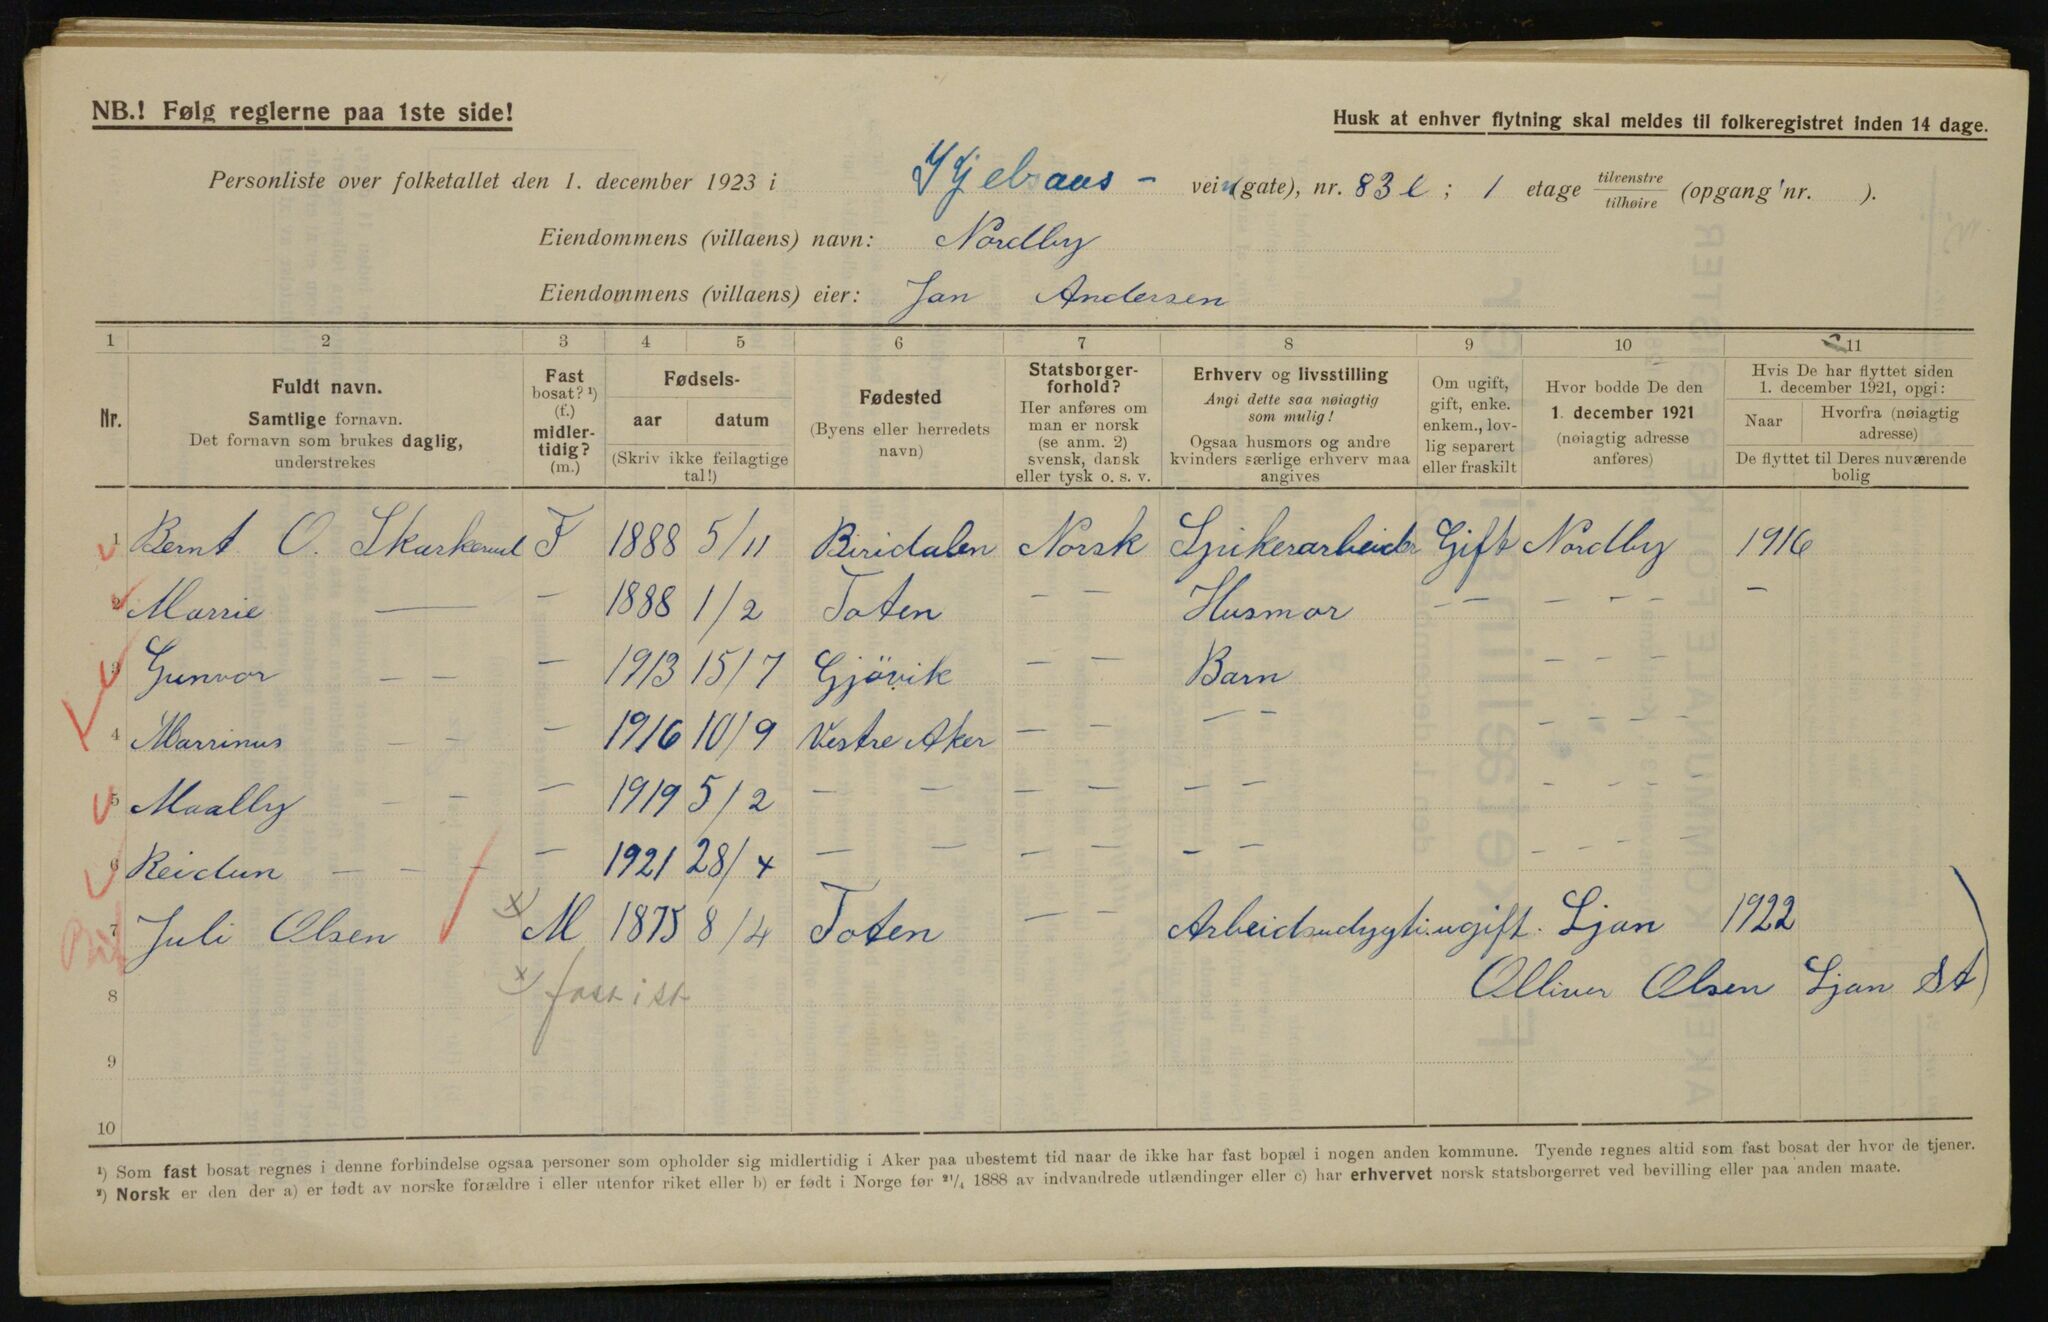 NB.! Følg reglerne paa 1ste side!
Husk at enhver flytning skal meldes til folkeregistret inden 14 dage.
Personliste over folketallet den 1. december 1923 i Kjelsaas - veien (gate), nr. 83 l ; 1 etage tilvenstre tilhøire (opgang nr. ).
Eiendommens (villaens) navn: Nordby
Eiendommens (villaens) eier: Jan Andersen
1 2 3 4 5 6 7 8 9 10 11
Nr.
Fuldt navn. Samtlige fornavn. Det fornavn som brukes daglig, understrekes
Fast bosat? ¹) (f.) midlertidig? (m.)
Fødsels- aar datum (Skriv ikke feilagtige tal!)
Fødested (Byens eller herredets navn)
Statsborgerforhold? Her anføres om man er norsk (se anm. 2) svensk, dansk eller tysk o. s. v.
Erhverv og livsstilling Angi dette saa nøiagtig som mulig! Ogsaa husmors og andre kvinders særlige erhverv maa angives
Om ugift, gift, enke. enkem., lovlig separert eller fraskilt
Hvor bodde De den 1. december 1921 (nøiagtig adresse anføres)
Hvis De har flyttet siden 1. december 1921, opgi: Naar Hvorfra (nøiagtig adresse) De flyttet til Deres nuværende bolig
1 Bernt O. Skarkerud F 1888 5/11 Biridalen Norsk Spikerarbeider Gift Nordby 1916
2 Marrie — — 1888 1/2 Toten — — Husmor — — — — — —
3 Gunvor — — — 1913 15/7 Gjövik — — Barn — — —
4 Marrinus — — — 1916 10/9 Vestre Aker — — — — — — — —
5 Maalby — — — 1919 5/2 — — — — — — — — —
6 Reidun — — — — 1921 28/4 — — — — — — — — — —
7 Juli Olsen x) M 1875 8/4 Toten — — Arbeidsudygti. ugift. Ljan 1922
8 x) fast ist Olliver Olsen Ljan St
9
10
¹) Som fast bosat regnes i denne forbindelse ogsaa personer som opholder sig midlertidig i Aker paa ubestemt tid naar de ikke har fast bopæl i nogen anden kommune. Tyende regnes altid som fast bosat der hvor de tjener.
²) Norsk er den der a) er født av norske forældre i eller utenfor riket eller b) er født i Norge før 21/4 1888 av indvandrede utlændinger eller c) har erhvervet norsk statsborgerret ved bevilling eller paa anden maate.